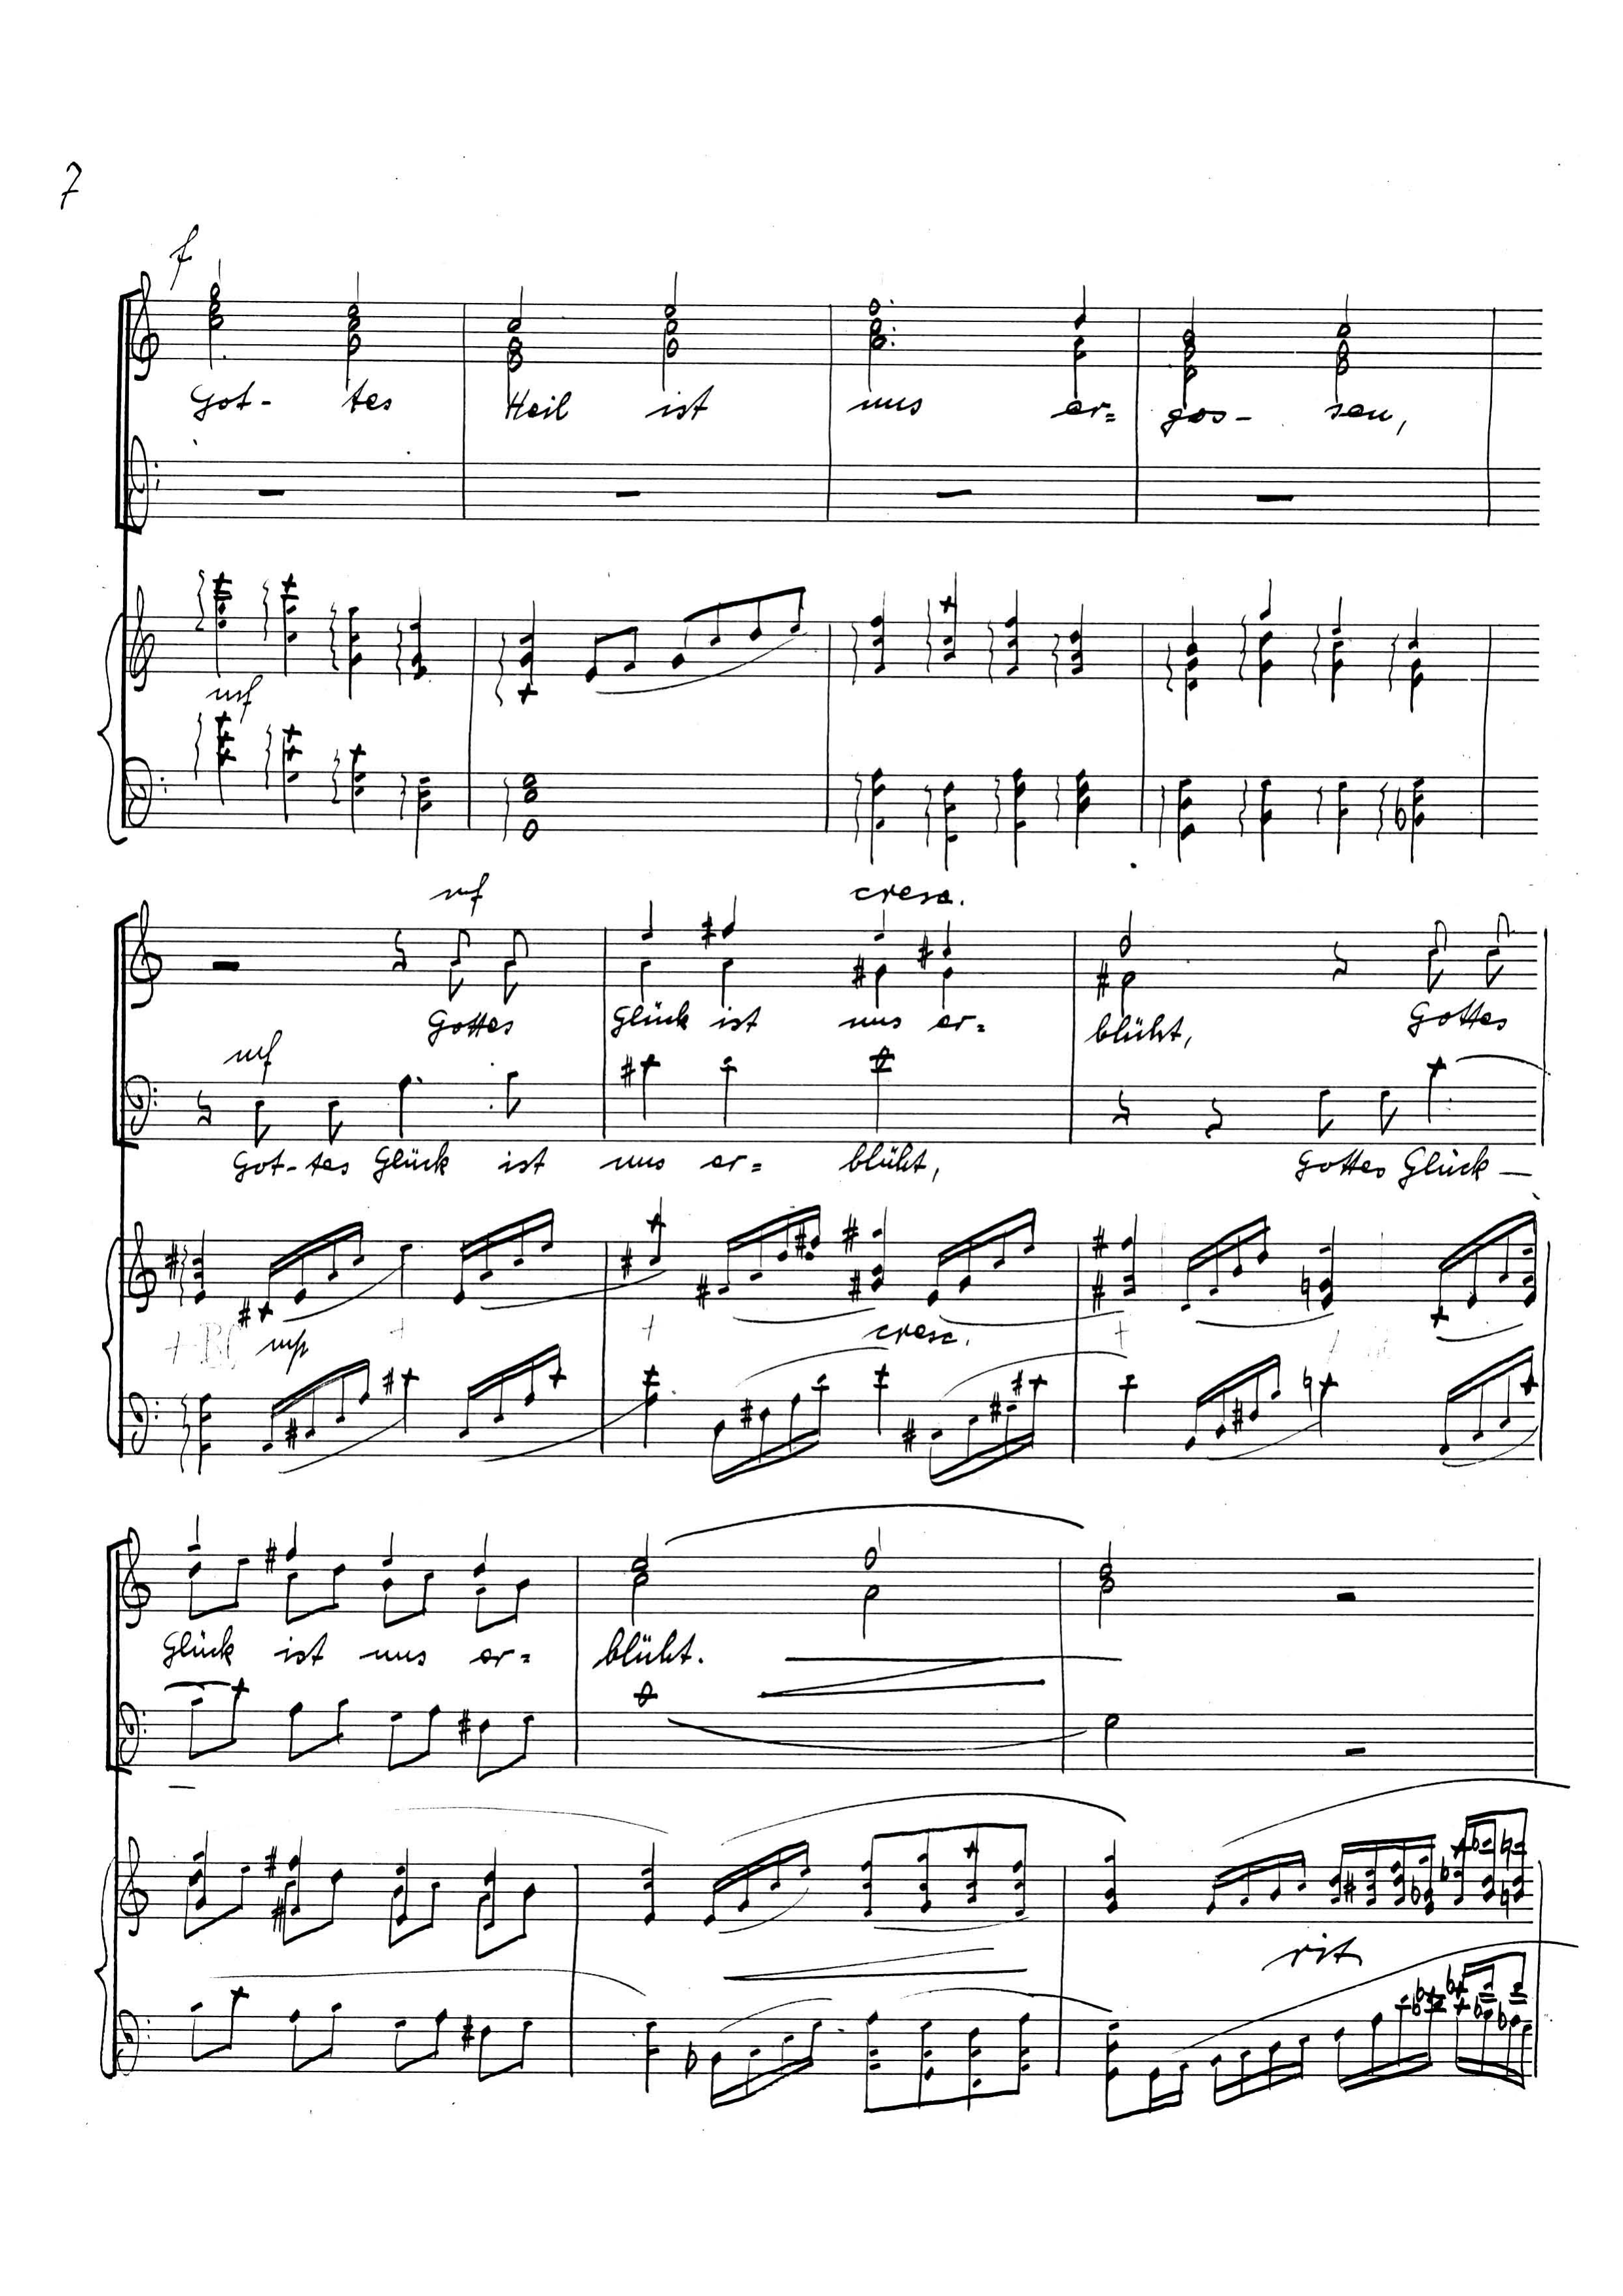 7
f
Got- tes Heil ist uns er= gos- sen,
mf
mf cresc.
Gottes Glück ist uns er= blüht, Gottes
mf
Got-tes Glück ist uns er= blüht, Gottes Glück —
mp cresc.
Glück ist uns er= blüht.
rit